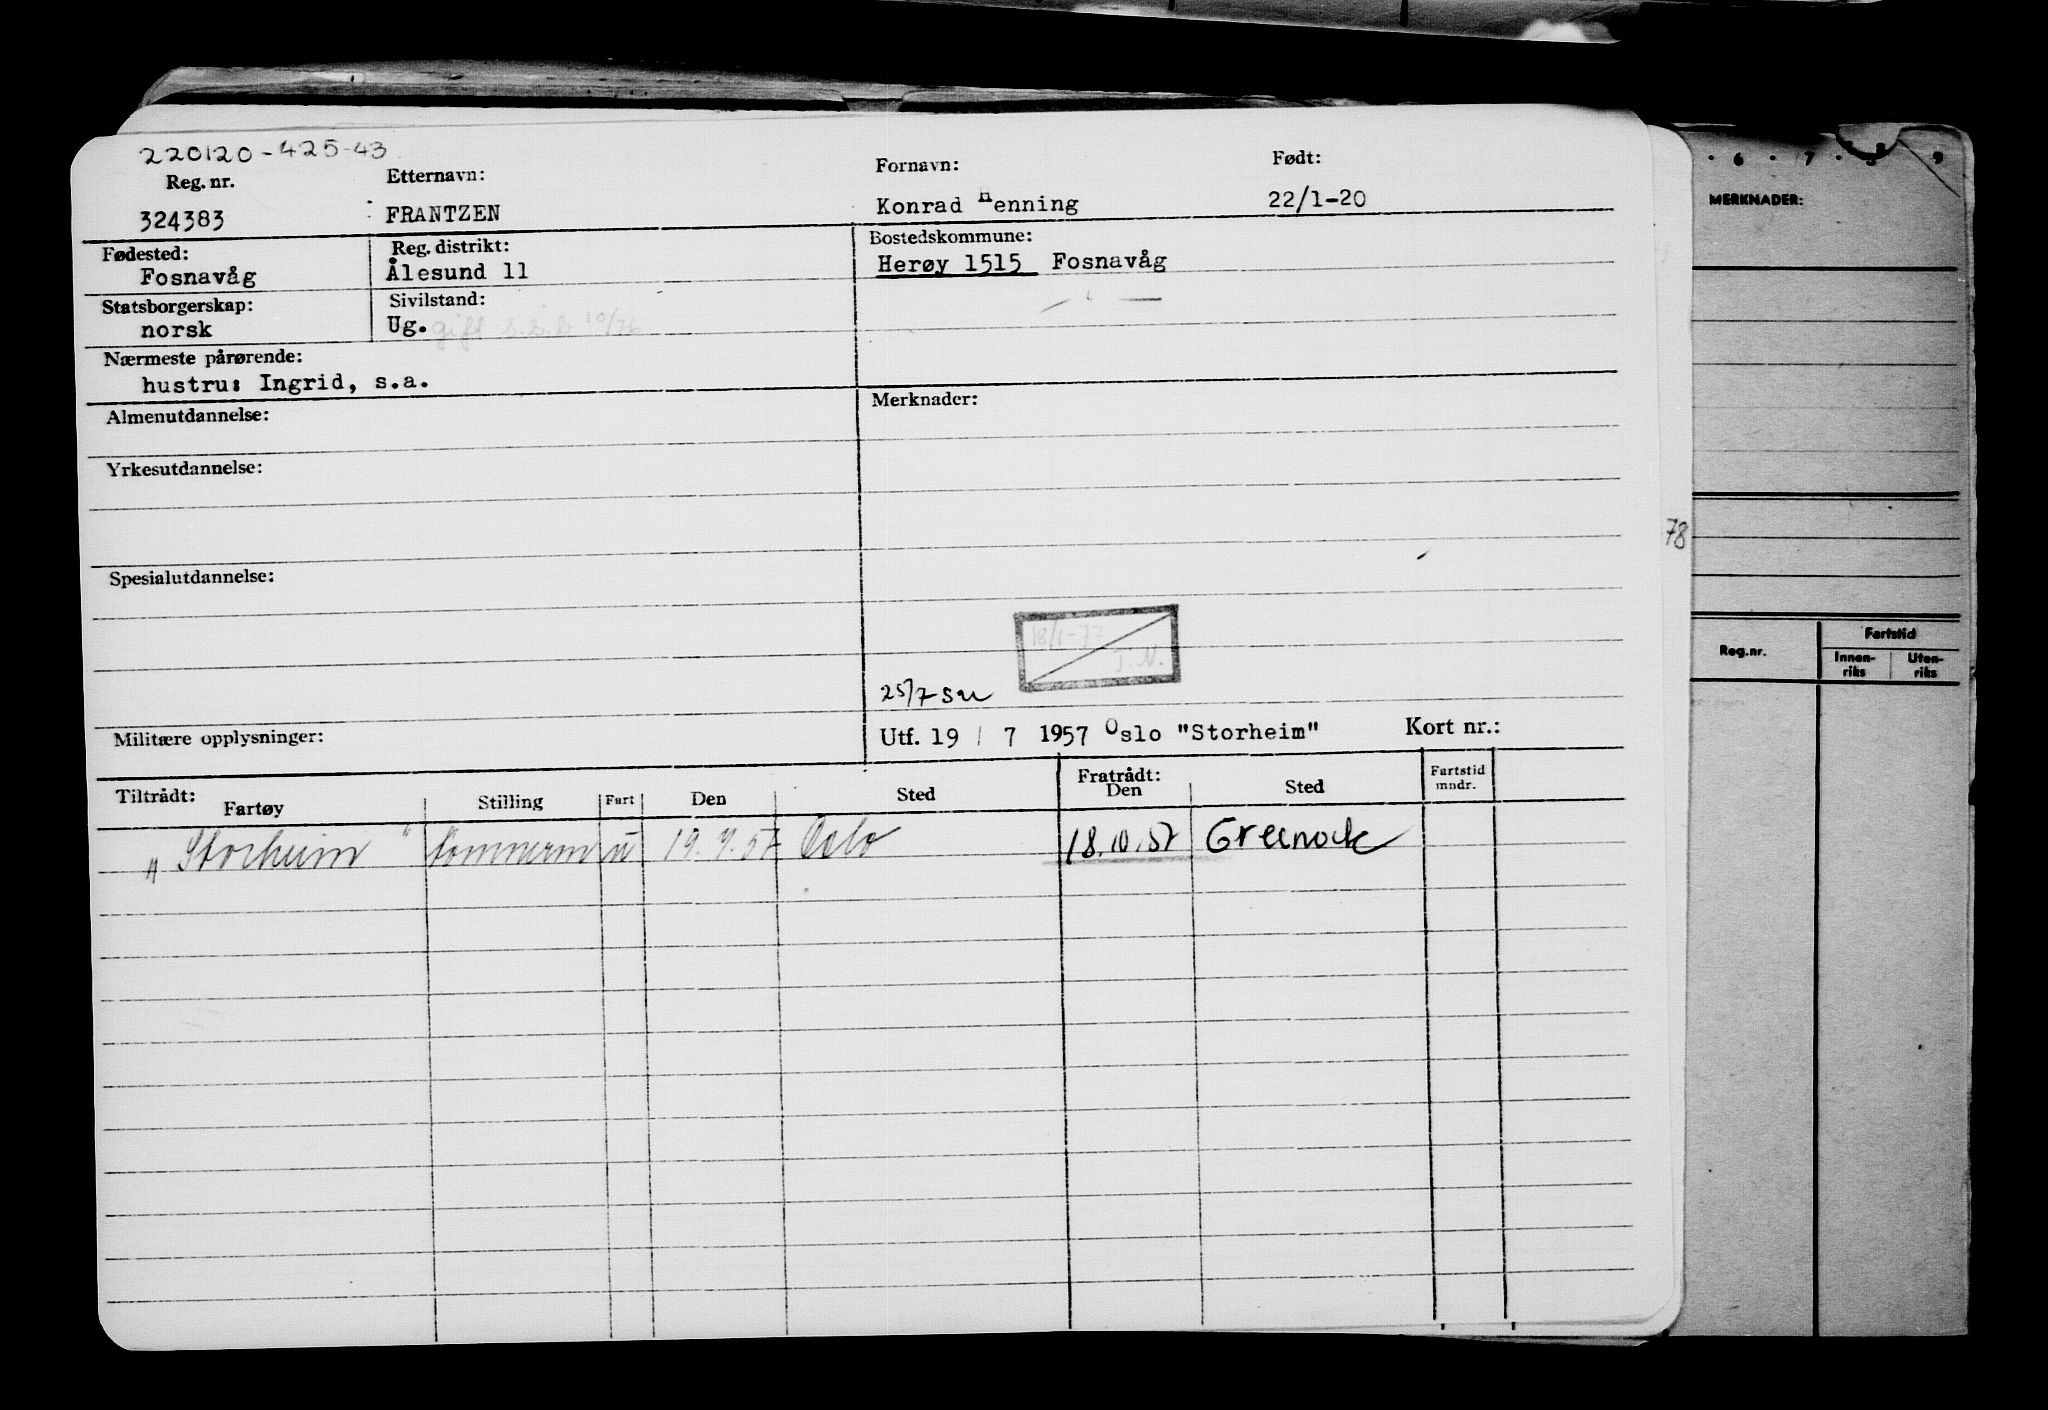 220120-425-43
Reg. nr. Etternavn: Fornavn: Født:
324383 FRANTZEN Konrad Henning 22/1-20
Fødested: Reg. distrikt: Bostedskommune:
Fosnavåg Ålesund 11 Herøy 1515 Fosnavåg
Statsborgerskap: Sivilstand:
norsk Ug. gift s.s.b 10/76
Nærmeste pårørende:
hustru: Ingrid, s.a.
Almenutdannelse: Merknader:
Yrkesutdannelse:
Spesialutdannelse:
18/1-77
J.N.
25/7 su
Militære opplysninger: Utf. 19 / 7 1957 Oslo "Storheim" Kort nr.:
Tiltrådt: Fratrådt:
Fartøy Stilling Fart Den Sted Den Sted Fartstid mndr.
"Storheim" tømmerm u 19.7.57 Oslo 18.10.57 Greenock
78
6 7 8 9
MERKNADER:
Reg.nr. Fartstid
Innen-riks Uten-riks